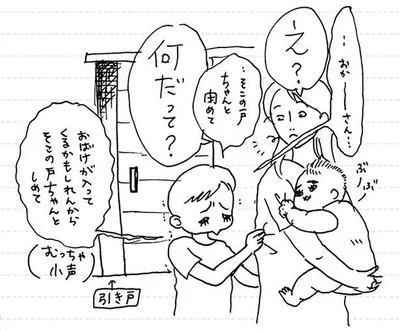 …おか〜〜さん…
え？
…そこの戸
ちゃんと
閉めて
何だって？
おばけが入って
くるかもしれんから
そこの戸ちゃんと
しめて
（むっちゃ
小声）
ぶ
ぶ
引き戸